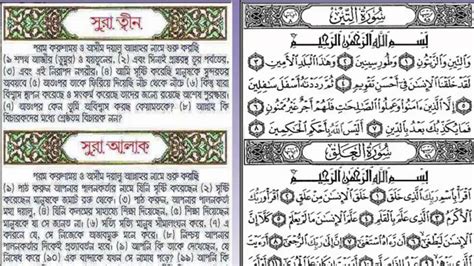 সুরা ত্বীন
পরম করুণাময় ও অসীম দয়ালু আল্লাহর নামে শুরু করছি
(১) শপথ আঞ্জীর (ডুমুর) ও যয়তুনের, (২) এবং সিনাই প্রান্তরস্থ তূর পর্বতের,
(৩) এবং এই নিরাপদ নগরীর। (৪) আমি সৃষ্টি করেছি মানুষকে সুন্দরতর
অবয়বে (৫) অতঃপর তাকে ফিরিয়ে দিয়েছি নীচ থেকে নীচে (৬) কিন্তু যারা
বিশ্বাস স্থাপন করেছে ও সৎকর্ম করেছে তাদের জন্যে রয়েছে অশেষ পুরস্কার।
(৭) অতঃপর কেন তুমি অবিশ্বাস করছ কেয়ামতকে? (৮) আল্লাহ কি
বিচারকদের মধ্যে শ্রেষ্টতম বিচারক নন?
সুরা আলাক্ব
পরম করুণাময় ও অসীম দয়ালু আল্লাহর নামে শুরু করছি
(১) পাঠ করুন আপনার পালনকর্তার নামে যিনি সৃষ্টি করেছেন (২) সৃষ্টি
করেছেন মানুষকে জমাট রক্ত থেকে। (৩) পাঠ করুন, আপনার পালনকর্তা
মহা দয়ালু, (৪) যিনি কলমের সাহায্যে শিক্ষা দিয়েছেন, (৫) শিক্ষা দিয়েছেন
মানুষকে যা সে জানত না। (৬) সত্যি সত্যি মানুষ সীমালংঘন করে, (৭) এ
কারণে যে, সে নিজেকে অভাবমুক্ত মনে করে। (৮) নিশ্চয় আপনার
পালনকর্তার দিকেই প্রত্যাবর্তন হবে। (৯) আপনি কি তাকে দেখেছেন, যে
নিষেধ করে (১০) এক বান্দাকে যখন সে নামায পড়ে? (১১) আপনি কি
سُورَةُ التِّينِ
بِسْمِ اللَّهِ الرَّحْمَٰنِ الرَّحِيمِ
وَالتِّينِ وَالزَّيْتُونِ ١ وَطُورِ سِينِينَ ٢ وَهَٰذَا الْبَلَدِ الْأَمِينِ ٣
لَقَدْ خَلَقْنَا الْإِنسَانَ فِي أَحْسَنِ تَقْوِيمٍ ٤ ثُمَّ رَدَدْنَاهُ أَسْفَلَ سَافِلِينَ ٥
إِلَّا الَّذِينَ آمَنُوا وَعَمِلُوا الصَّالِحَاتِ فَلَهُمْ أَجْرٌ غَيْرُ مَمْنُونٍ ٦
فَمَا يُكَذِّبُكَ بَعْدُ بِالدِّينِ ٧ أَلَيْسَ اللَّهُ بِأَحْكَمِ الْحَاكِمِينَ ٨
سُورَةُ الْعَلَقِ
بِسْمِ اللَّهِ الرَّحْمَٰنِ الرَّحِيمِ
اقْرَأْ بِاسْمِ رَبِّكَ الَّذِي خَلَقَ ١ خَلَقَ الْإِنسَانَ مِنْ عَلَقٍ ٢ اقْرَأْ وَرَبُّكَ
الْأَكْرَمُ ٣ الَّذِي عَلَّمَ بِالْقَلَمِ ٤ عَلَّمَ الْإِنسَانَ مَا لَمْ يَعْلَمْ ٥ كَلَّا إِنَّ